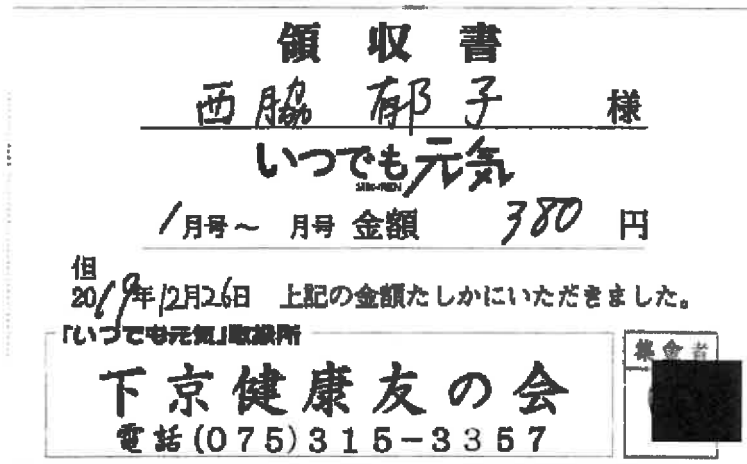 領収書
西脇 郁子 様
いつでも元気
MIN-IREN
1月号～ 月号 金額 380 円
但
2019年12月26日 上記の金額たしかにいただきました。
「いつでも元気」取扱所
集金者
下京健康友の会
電話(075)315-3357